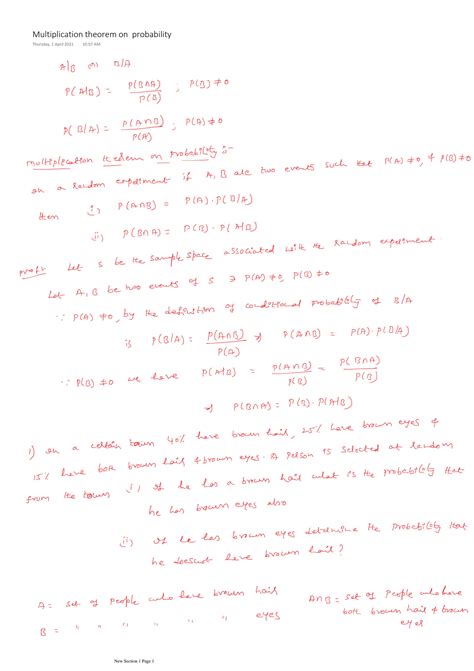 Multiplication theorem on probability
Thursday, 1 April 2021 10:57 AM
A/B or B/A
P(A/B) = P(B∩A)/P(B) ; P(B) ≠ 0
P(B/A) = P(A∩B)/P(A) ; P(A) ≠ 0
Multiplication theorem on Probability :-
In a random expediment if A, B are two events such that P(A) ≠ 0, & P(B) ≠ 0
then i) P(A∩B) = P(A) . P(B/A)
ii) P(B∩A) = P(B) . P(A/B)
proof:- Let S be the sample space associated with the random expediment.
Let A, B be two events of S ∋ P(A) ≠ 0, P(B) ≠ 0
∵ P(A) ≠ 0, by the definition of conditional probability of B/A
is P(B/A) = P(A∩B)/P(A) ⇒ P(A∩B) = P(A) . P(B/A)
∵ P(B) ≠ 0 we have P(A/B) = P(A∩B)/P(B) = P(B∩A)/P(B)
⇒ P(B∩A) = P(B) . P(A/B)
1) In a certain town 40% have brown hair, 25% have brown eyes &
15% have both brown hair & brown eyes. A Person is selected at random
from the town i) If he has a brown hair what is the probability that
he has brown eyes also
ii) If he has brown eyes determine the Probability that
he doesnot have brown hair?
A = set of people who have brown hair
A∩B = set of People who have
both brown hair & brown
eyes
B = " " " " " eyes
New Section 1 Page 1